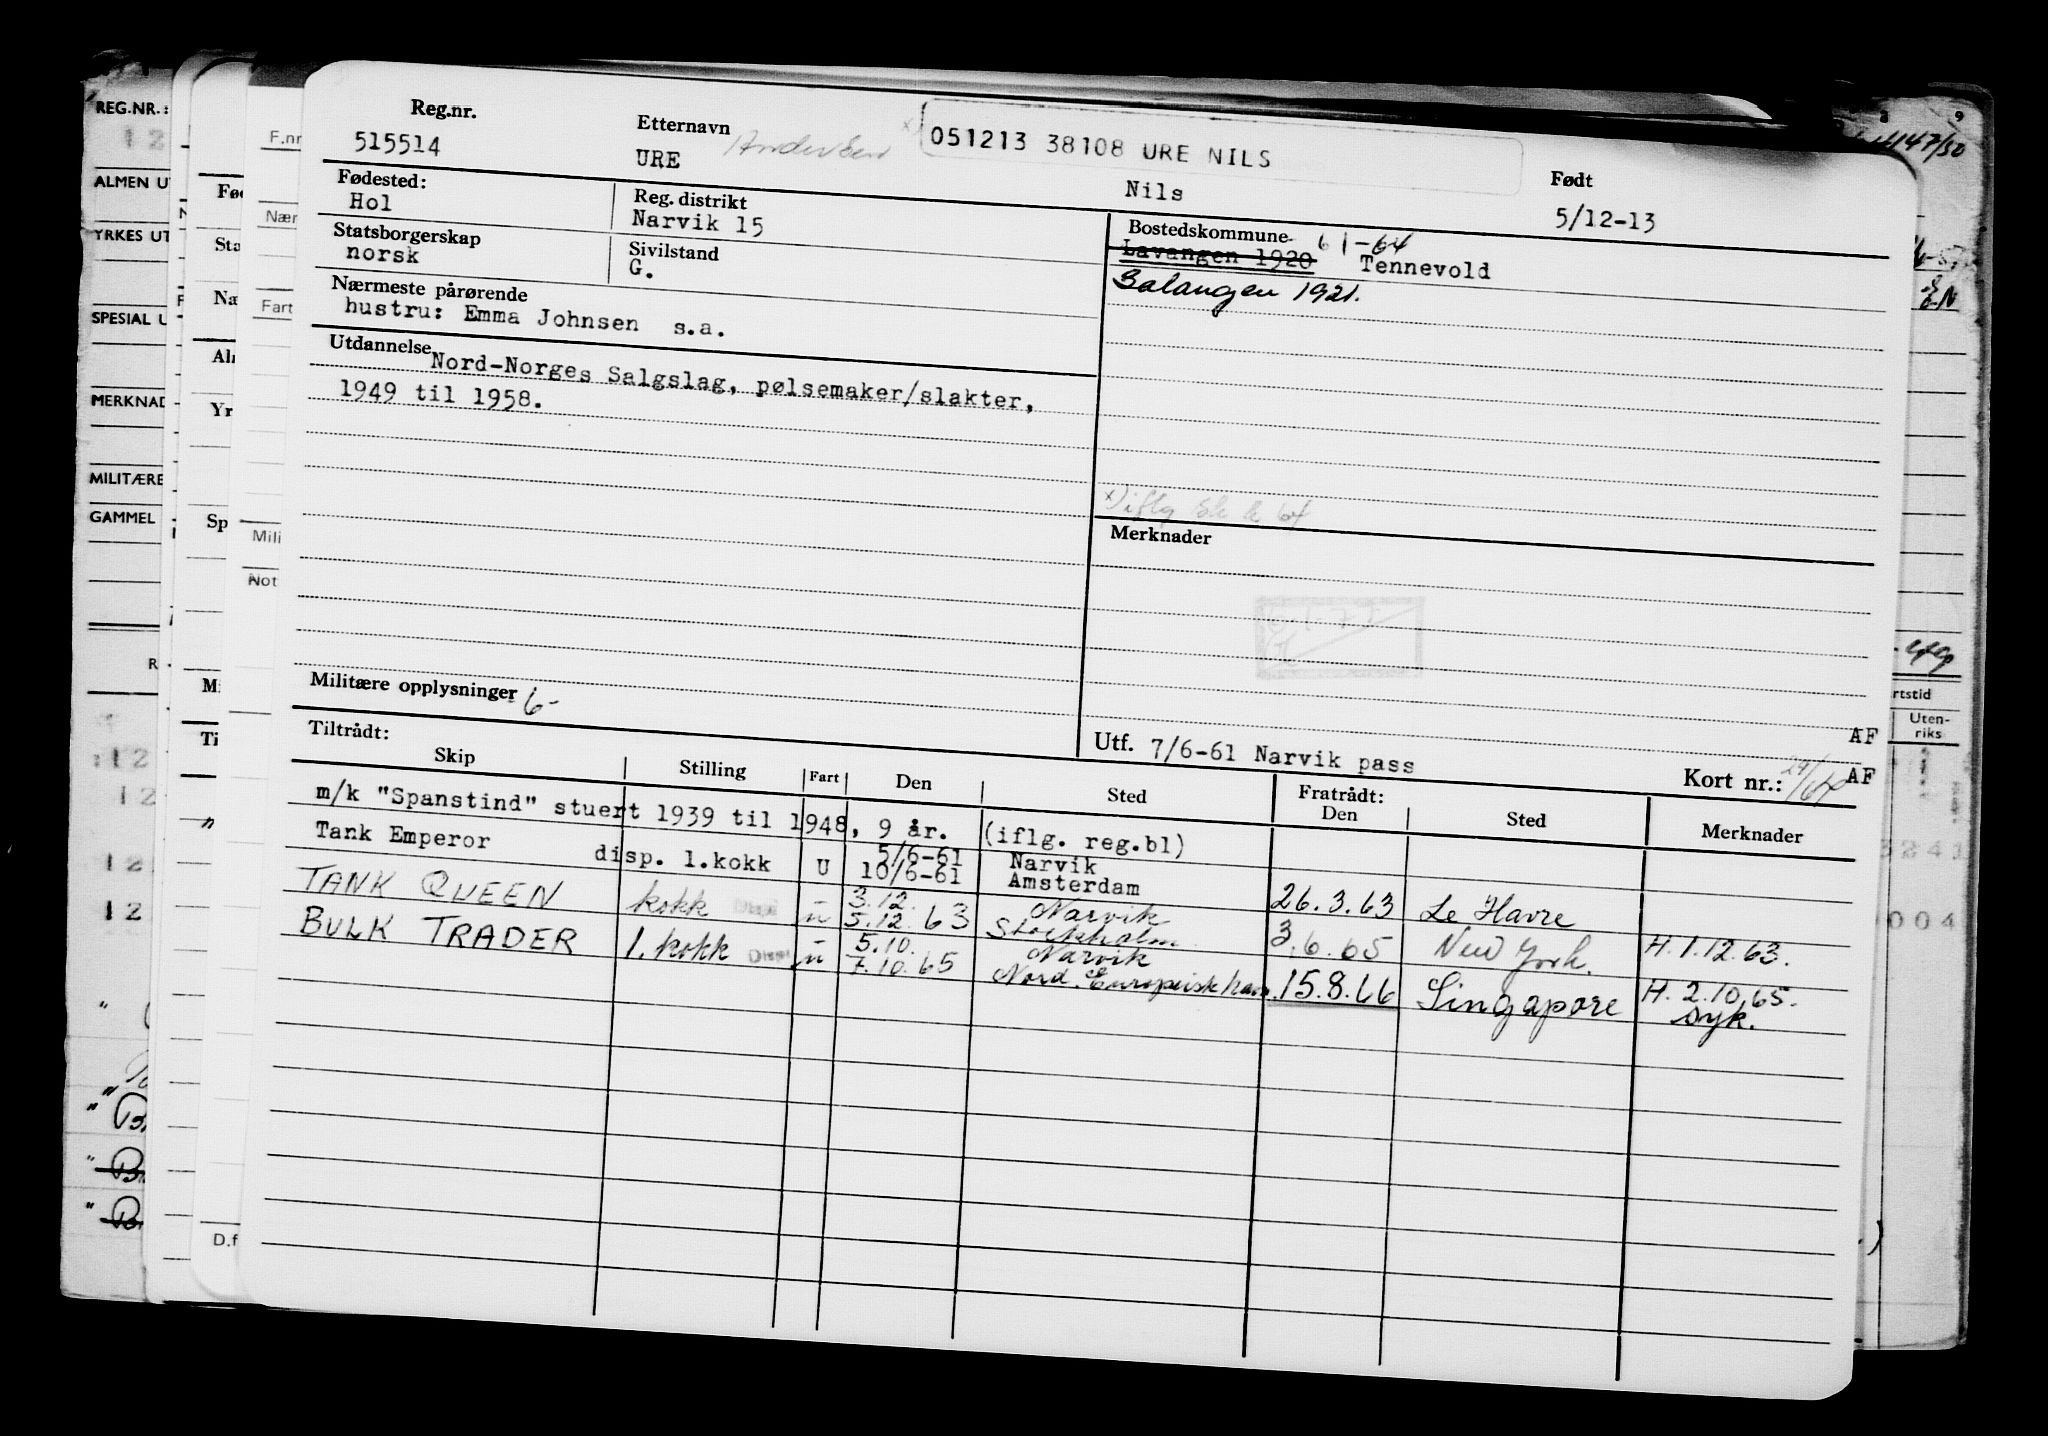 Reg.nr.
515514
Etternavn
URE Andersen x)
051213 38108 URE NILS
Nils
Født
5/12-13
Fødested:
Hol
Reg. distrikt
Narvik 15
Bostedskommune 61-64
Lavangen 1920 Tennevold
Salangen 1921.
Statsborgerskap
norsk
Sivilstand
G.
Nærmeste pårørende
hustru: Emma Johnsen s.a.
Utdannelse
Nord-Norges Salgslag, pølsemaker/slakter,
1949 til 1958.
x) iflg
Merknader
Militære opplysninger
Utf. 7/6-61 Narvik pass
AF
Kort nr.: AF
Tiltrådt:
Skip Stilling Fart Den Sted Fratrådt: Den Sted Merknader
m/k "Spanstind" stuert 1939 til 1948, 9 år. (iflg. reg.bl)
Tank Emperor disp. 1.kokk U 5/6-61 Narvik
10/6-61 Amsterdam 26.3.63 Le Havre
TANK QUEEN kokk u 3.12. Narvik
5.12.63 Stockholm 3.6.65 New York. H. 1.12.63.
BULK TRADER 1. kokk u 5.10. Narvik
7.10.65 Nord. Europeisk havn 15.8.66 Singapore H. 2.10.65.
syk.
REG.NR.:
ALMEN UT
YRKES UT
SPESIAL U
MERKNAD
MILITÆRE
GAMMEL
F.nr
Nær
Fart
Mili
Not
D.f
Fød
Sta
Næ
Alm
Yr
Sp
Mi
Ti
8 9
147/50
rtstid
Uten-
riks